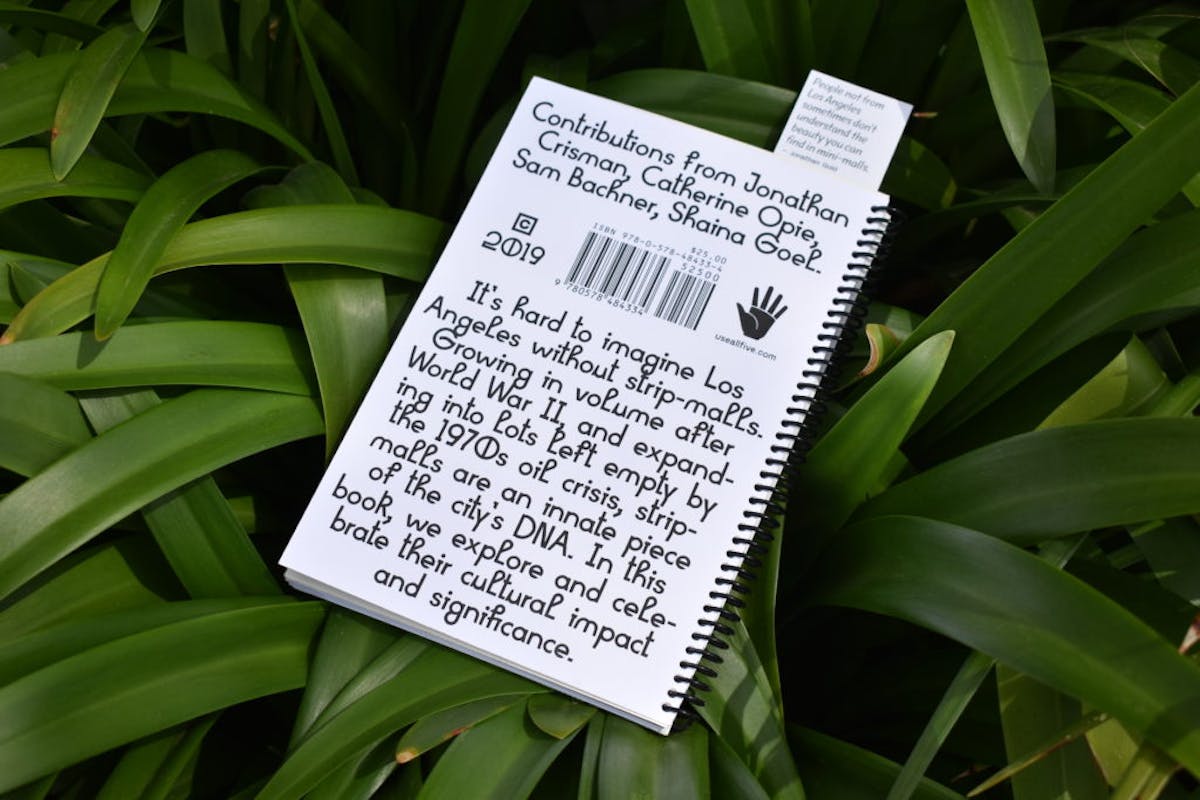 People not from
Los Angeles
sometimes don't
understand the
beauty you can
find in mini-malls.
Contributions from Jonathan
Crisman, Catherine Opie,
Sam Bachner, Shaina Goel.
C
2019
ISBN 978-0-578-48433-4
$25.00
52500
9 780578 484334
useallfive.com
It's hard to imagine Los
Angeles without strip-malls.
Growing in volume after
World War II, and expand-
ing into lots left empty by
the 1970s oil crisis, strip-
malls are an innate piece
of the city's DNA. In this
book, we explore and cele-
brate their cultural impact
and significance.